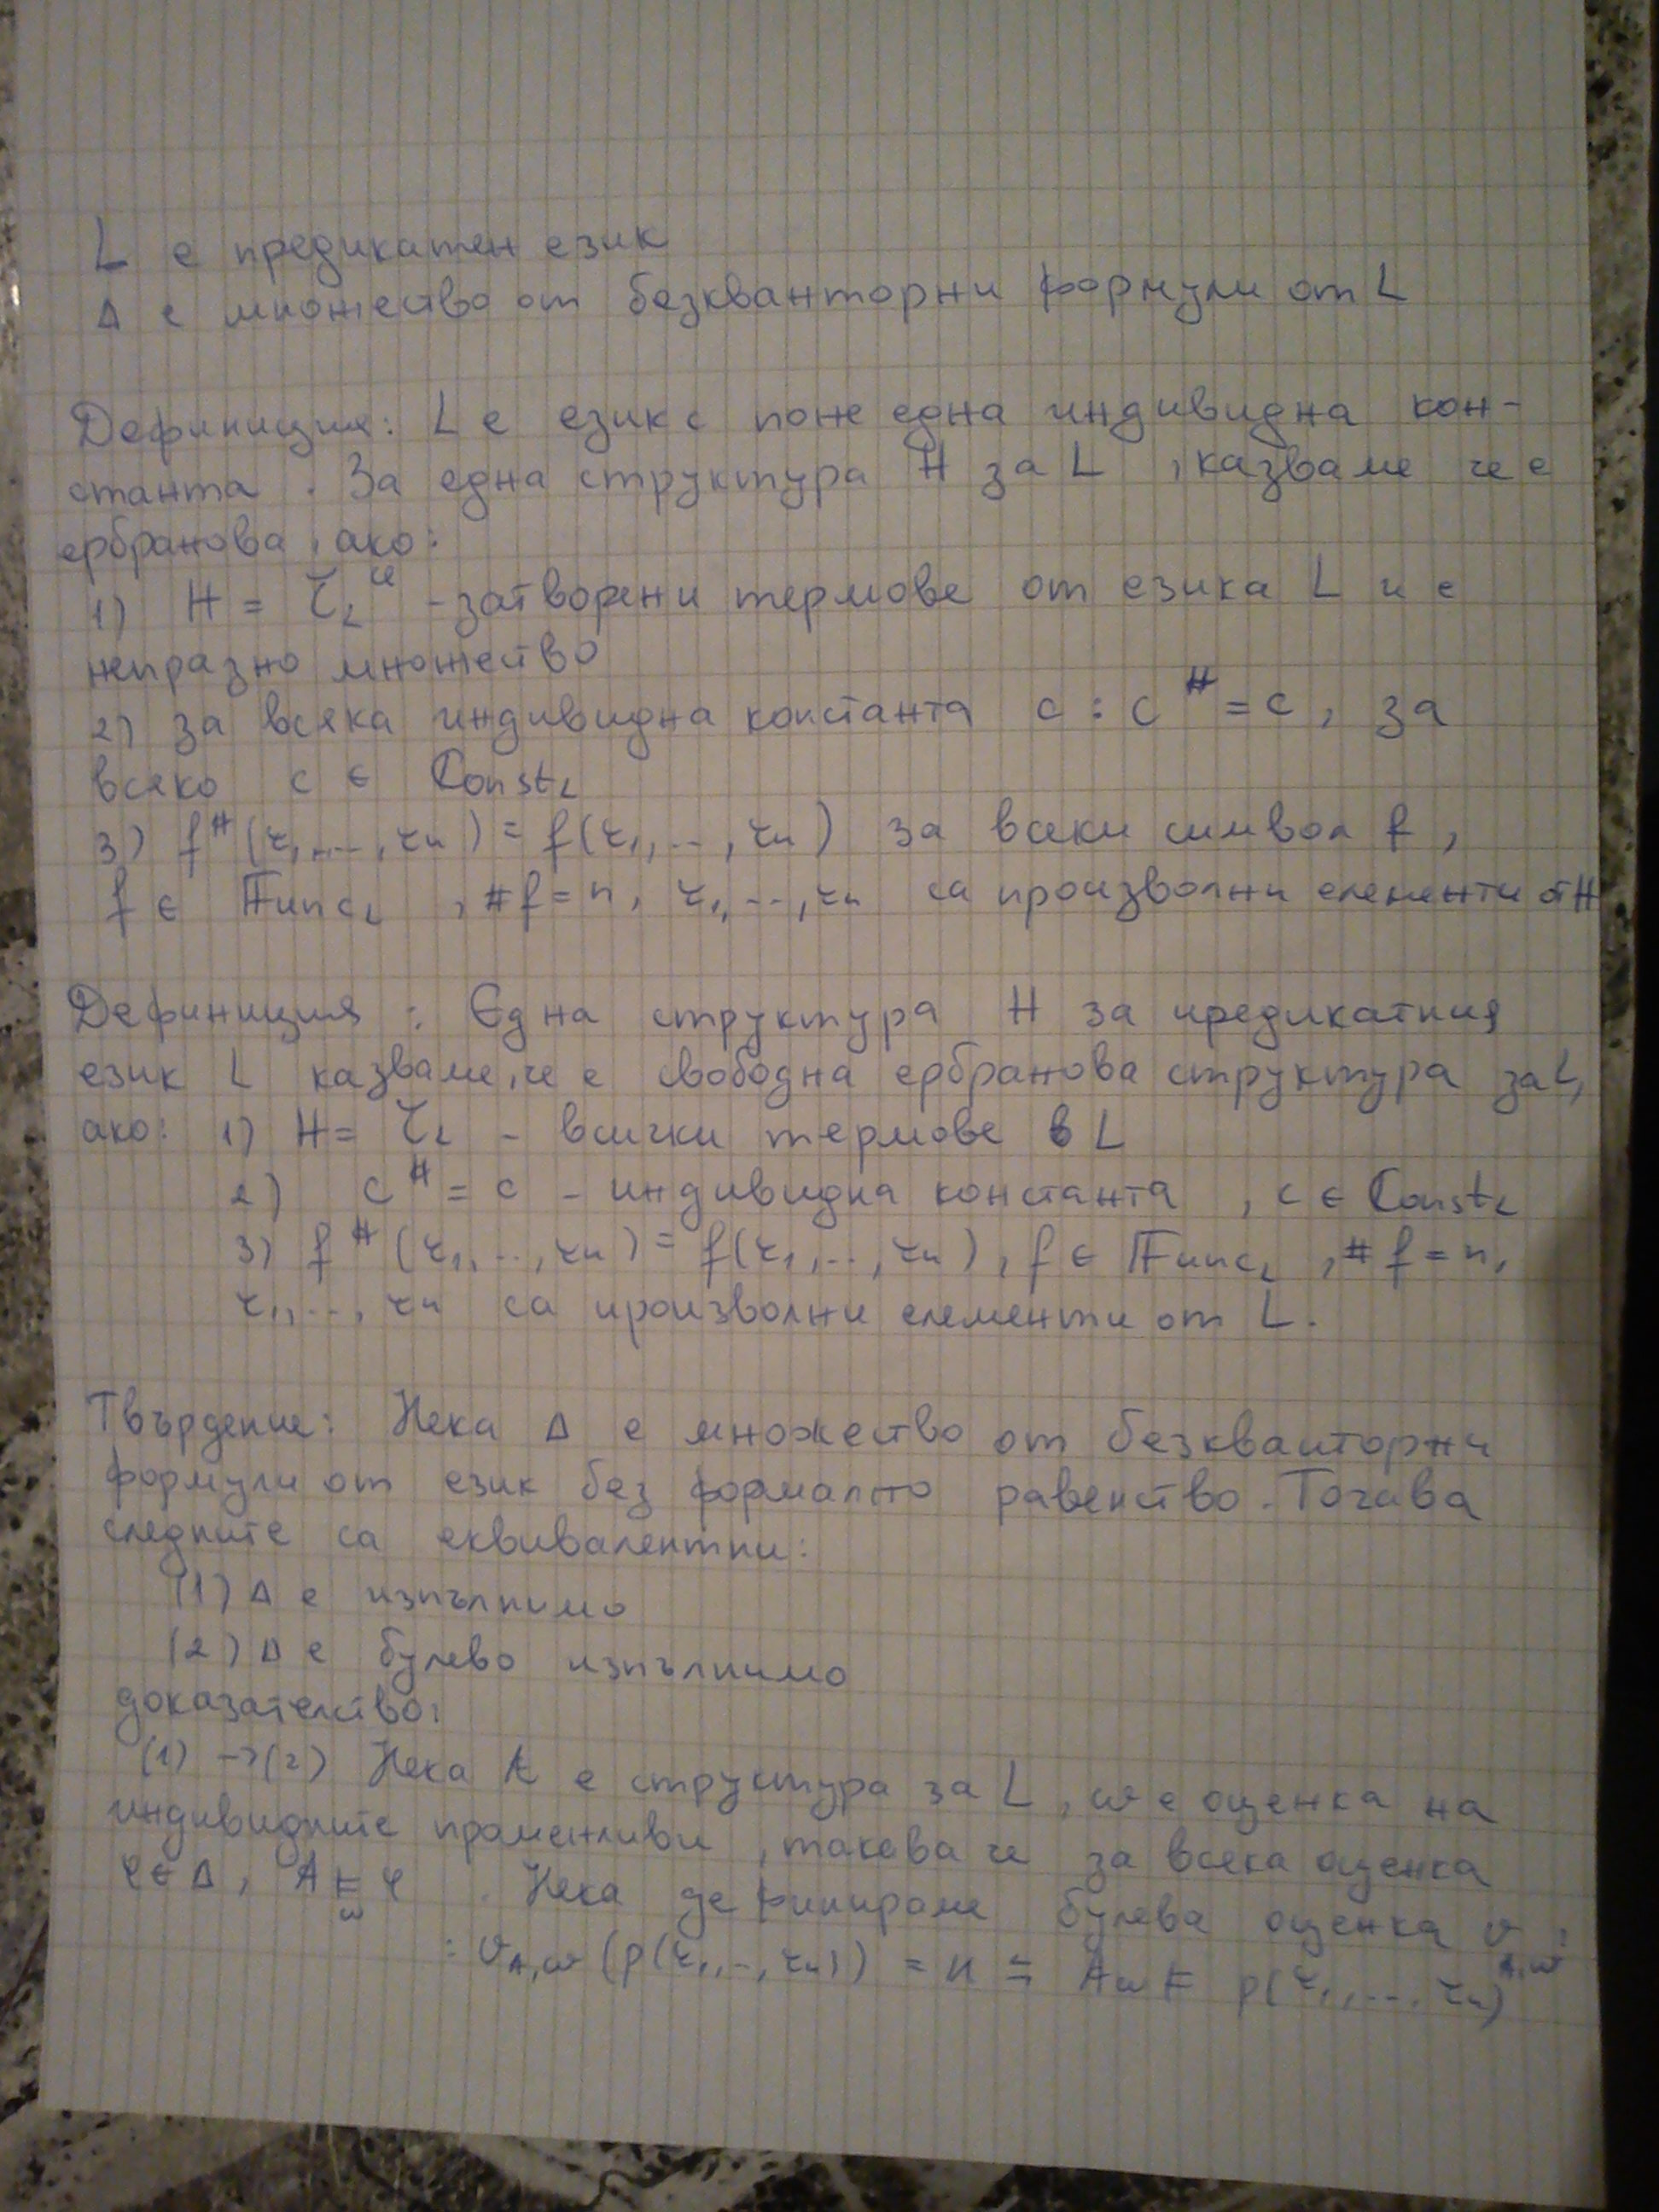 L е предикатен език
Δ е множество от безкванторни формули от L
Дефиниция: L е език с поне една индивидна кон-
станта. За една структура H за L, казваме че е
ербранова, ако:
1) H = τ_L^cl - затворени термове от езика L и е
непразно множество
2) за всяка индивидна константа c : c^H = c, за
всяко c ∈ Const_L
3) f^H(τ₁,...,τₙ) = f(τ₁,...,τₙ) за всеки символ f,
f ∈ Func_L, #f = n, τ₁,...,τₙ са произволни елементи от H
Дефиниция: Една структура H за предикатния
език L казваме, че е свободна ербранова структура за L,
ако: 1) H = τ_L - всички термове в L
2) c^H = c - индивидна константа, c ∈ Const_L
3) f^H(τ₁,...,τₙ) = f(τ₁,...,τₙ), f ∈ Func_L, #f = n,
τ₁,...,τₙ са произволни елементи от L.
Твърдение: Нека Δ е множество от безкванторни
формули от език без формално равенство. Тогава
следните са еквивалентни:
(1) Δ е изпълнимо
(2) Δ е булево изпълнимо
доказателство:
(1) →(2) Нека A е структура за L, w е оценка на
индивидните променливи, такава че за всяка оценка
φ ∈ Δ, A ⊨_w φ. Нека дефинираме булева оценка v_A,w :
: v_A,w (p(τ₁,..,τₙ)) = И ⇆ A_w ⊨ p(τ₁,...,τₙ)